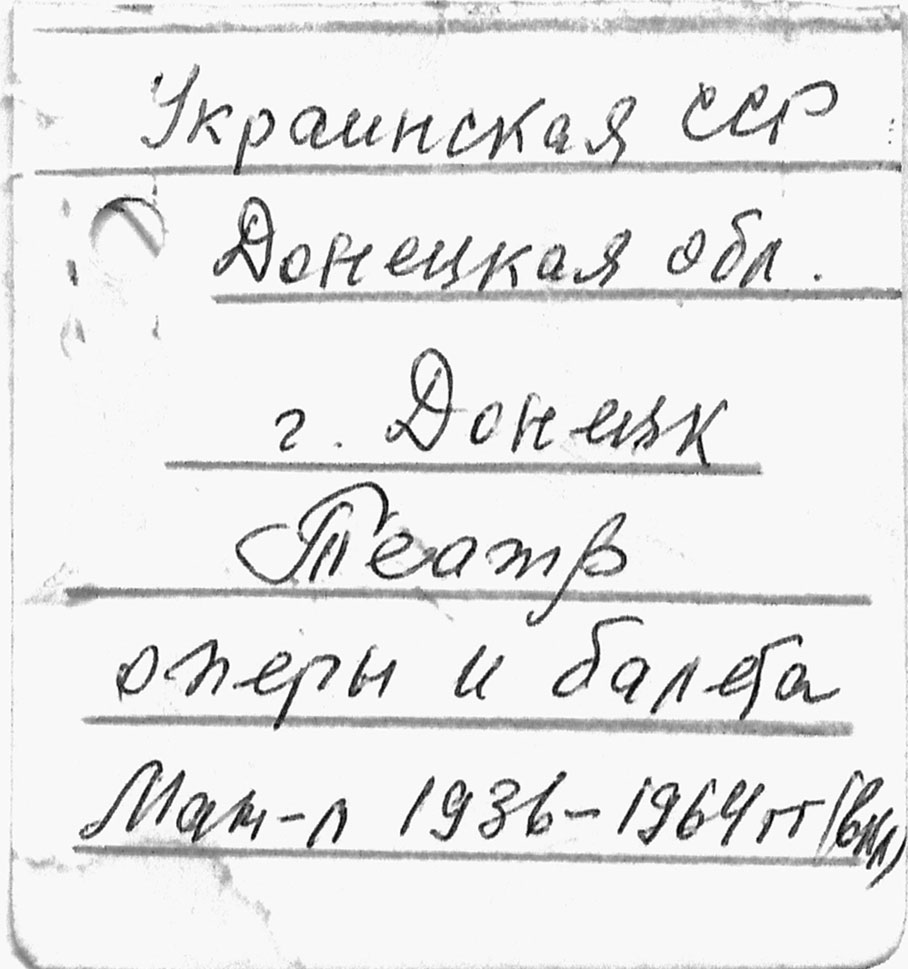 Украинская ССР
Донецкая обл.
г. Донецк
Театр
оперы и балета
Мат-л 1936-1964 гг (вкл)